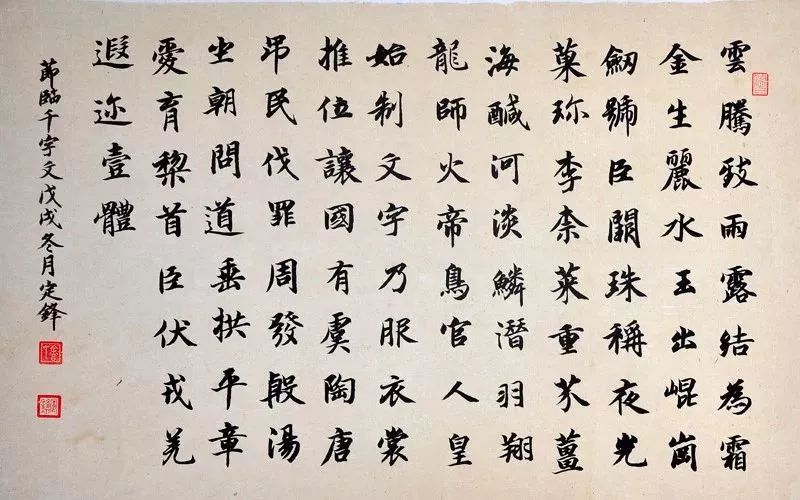 雲騰致雨露結為霜
金生麗水玉出崐崗
劒號臣闕珠稱夜光
菓珎李柰菜重芥薑
海醎河淡鱗潛羽翔
龍師火帝鳥官人皇
始制文字乃服衣裳
推位讓國有虞陶唐
吊民伐罪周發殷湯
坐朝問道垂拱平章
愛育黎首臣伏戎羌
遐迩壹體
節臨千字文戊戌冬月定鋒